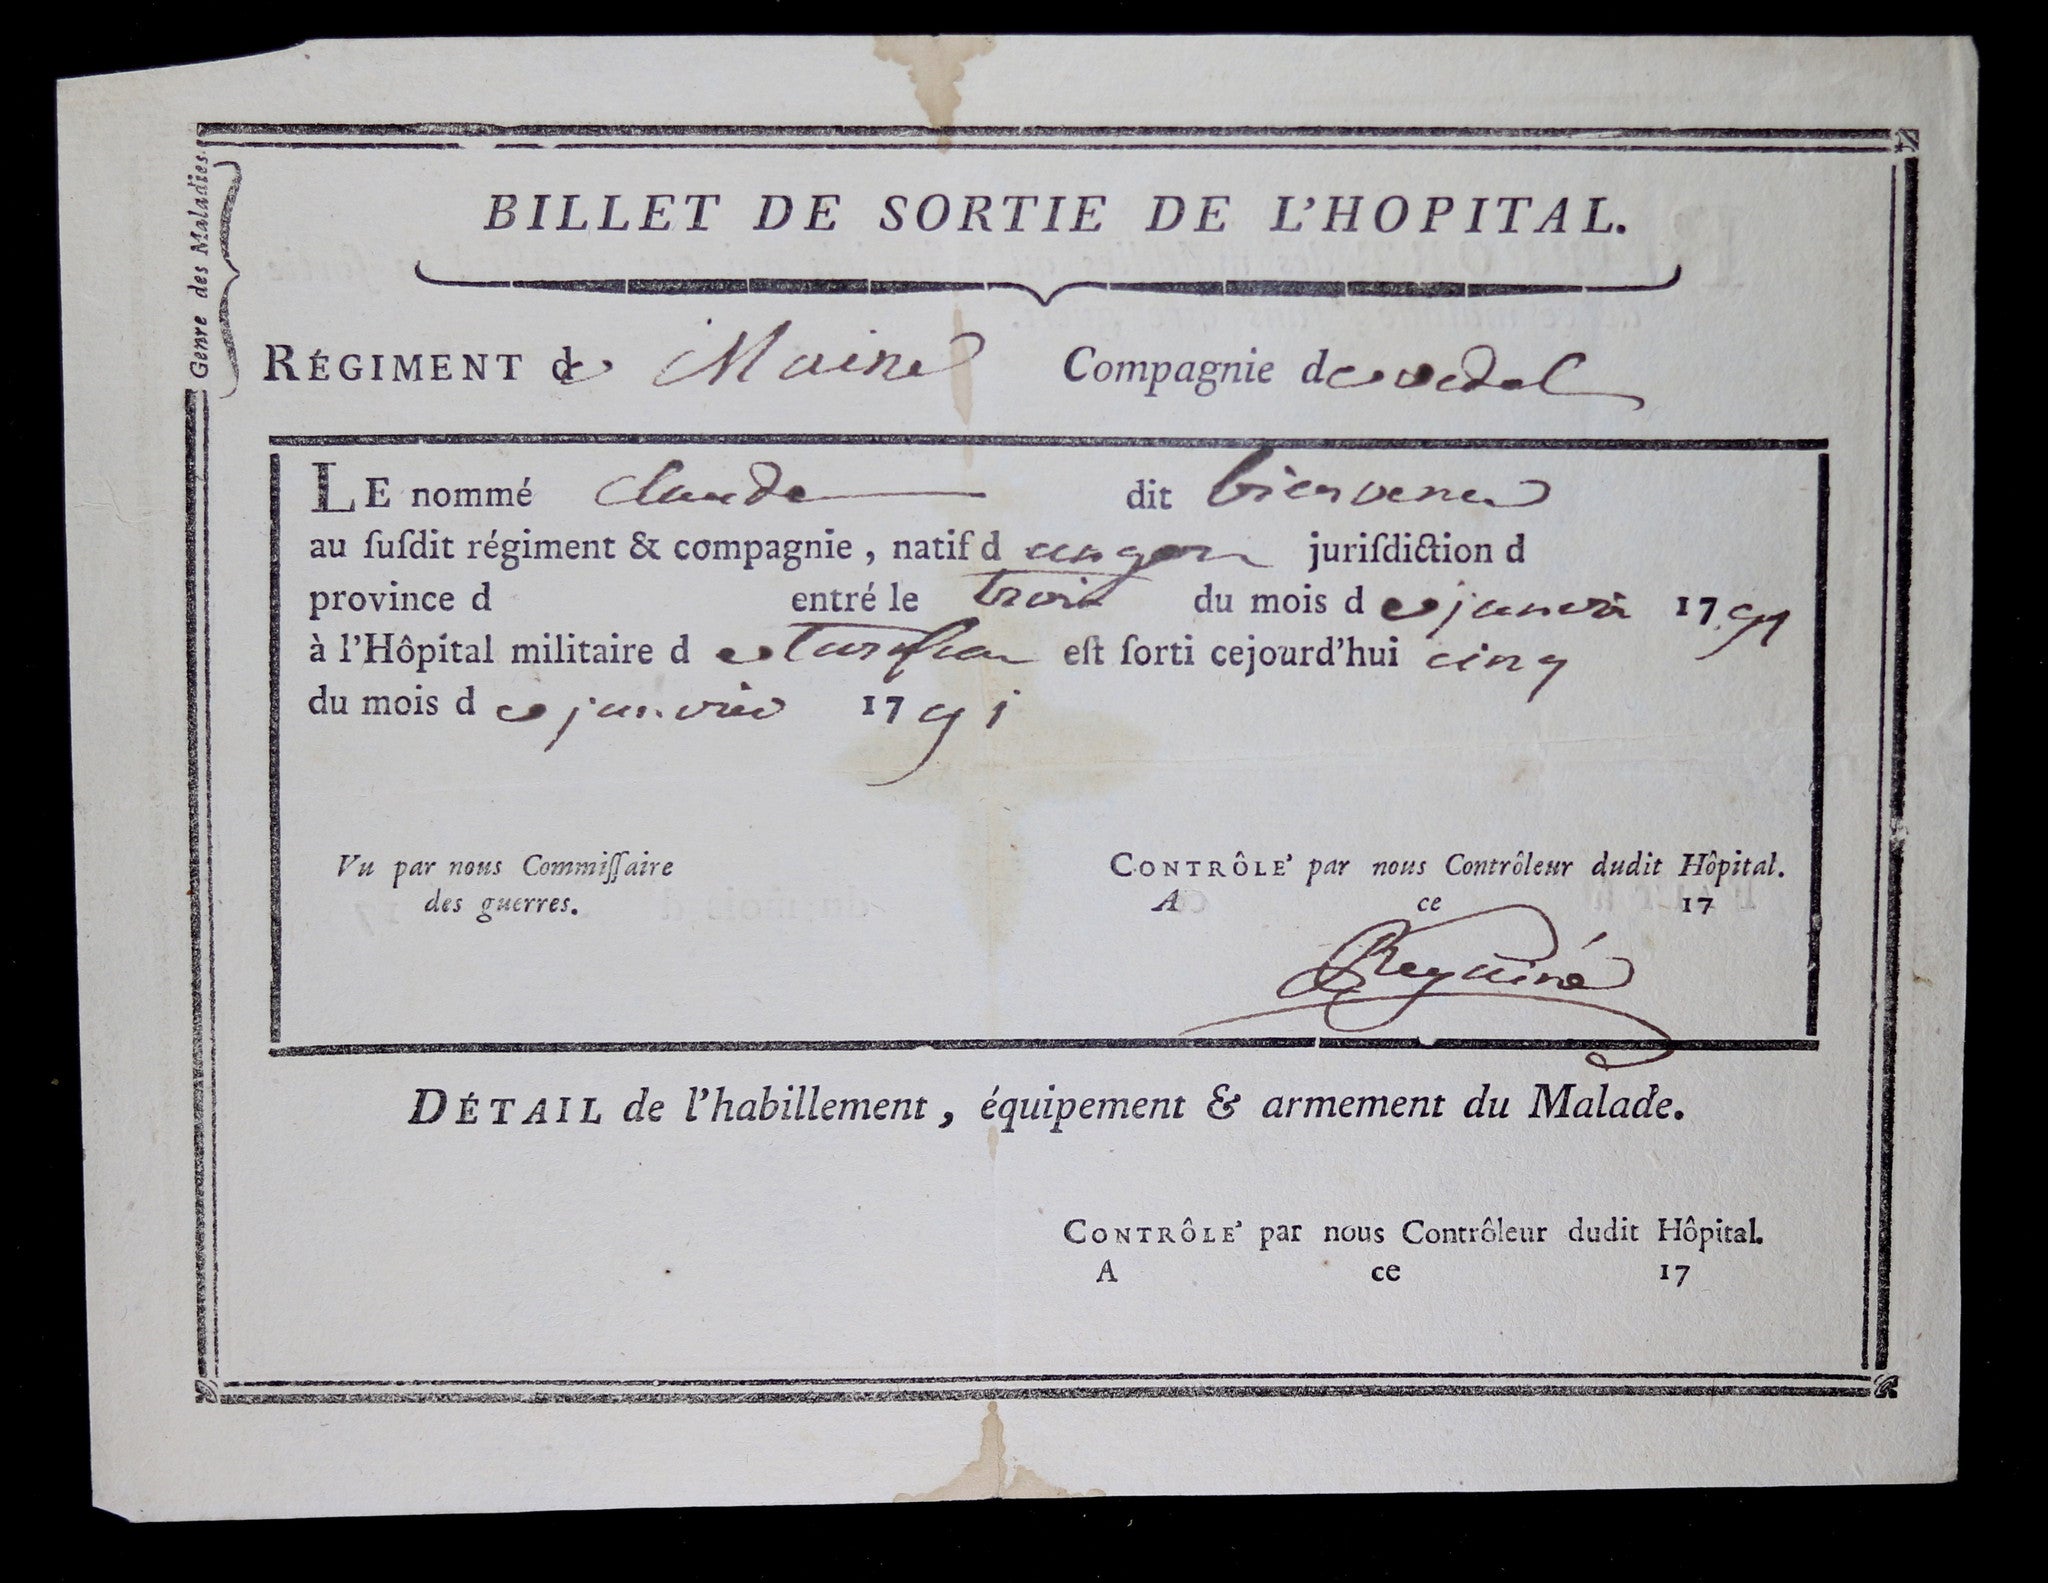 Genre des Maladies.
BILLET DE SORTIE DE L'HOPITAL.
RÉGIMENT de Maine Compagnie de vedel
LE nommé claude dit bienvenu
au ſuſdit régiment & compagnie, natif d jurifdiction d
province d entré le trois du mois de janvier 1791
à l'Hôpital militaire de eſt ſorti cejourd'hui cinq
du mois de janvier 1791
Vu par nous Commiſſaire
des guerres.
CONTRÔLE' par nous Contrôleur dudit Hôpital.
A ce 17
DÉTAIL de l'habillement, équipement & armement du Malade.
CONTRÔLE' par nous Contrôleur dudit Hôpital.
A ce 17